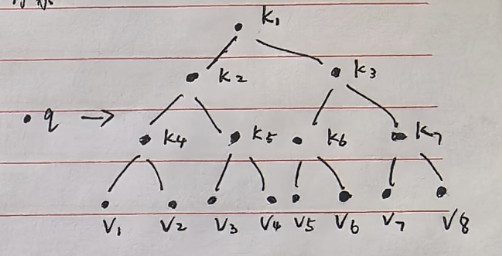 k1
k2 k3
q → k4 k5 k6 k7
V1 V2 V3 V4 V5 V6 V7 V8